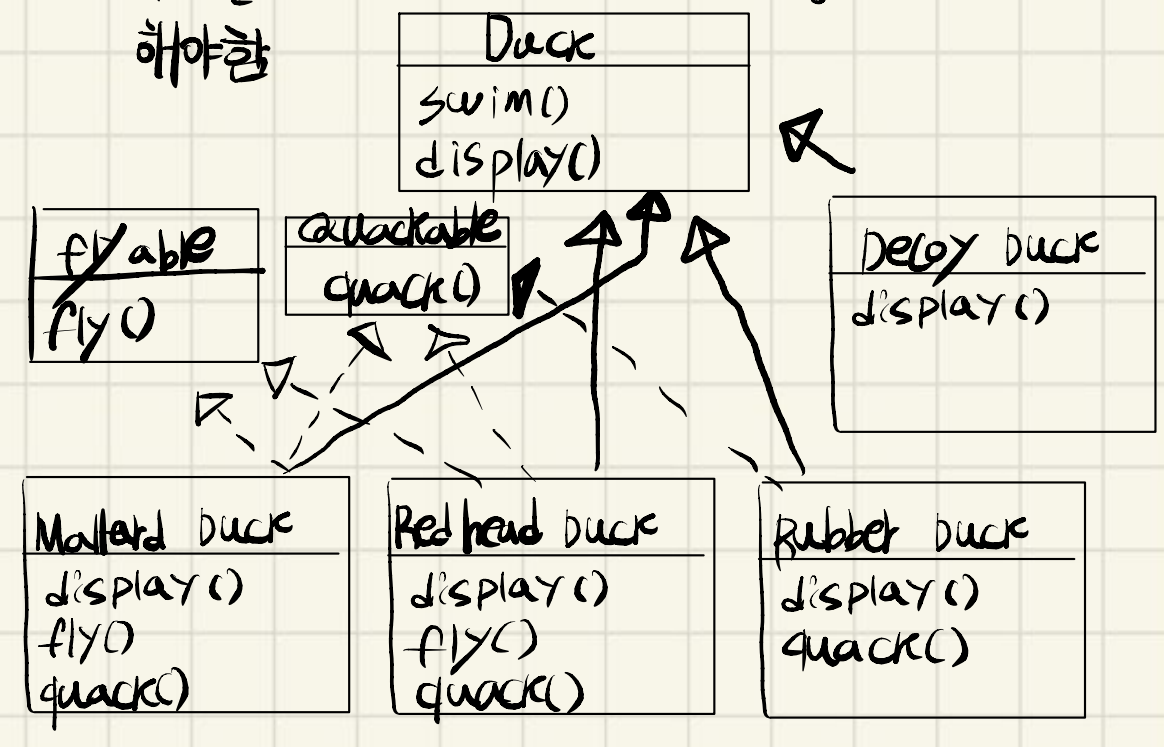 해야함
Duck
swim()
display()
flyable
fly()
Quackable
quack()
Decoy Duck
display()
Mallard Duck
display()
fly()
quack()
Red head Duck
display()
fly()
quack()
Rubber Duck
display()
quack()